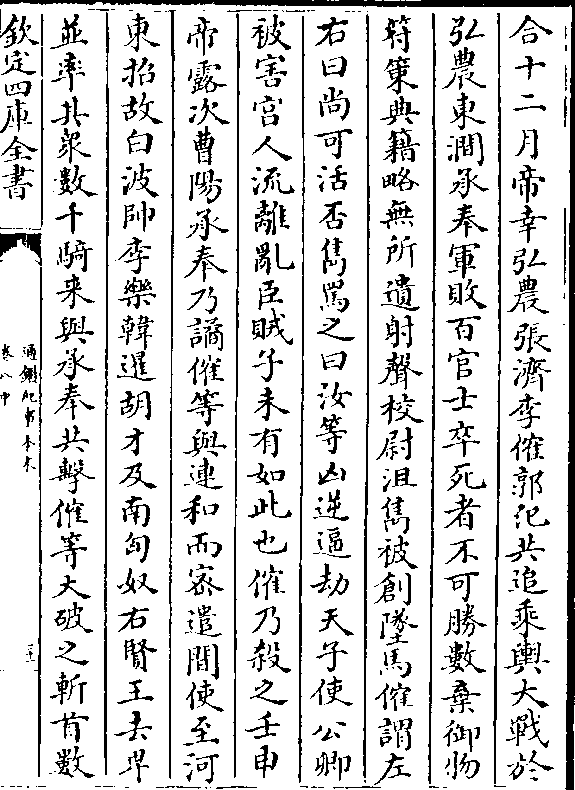 合十二月帝幸弘農張濟李傕郭汜共追乘輿大戰於
弘農東澗承奉軍敗百官士卒死者不可勝數棄御物
符策典籍略無所遺射聲校尉沮雋被創墜馬傕謂左
右曰尚可活否雋罵之曰汝等凶逆逼劫天子使公卿
被害宫人流離亂臣賊子未有如此也傕乃殺之壬申
帝露次曹陽承奉乃譎傕等與連和而宻遣間使至河
東招故白波帥李樂韓暹胡才及南匈奴右賢王去卑
並率其衆數千騎来與承奉共擊傕等大破之斬首數
欽定四庫全書
通鑑紀事本末
卷八中